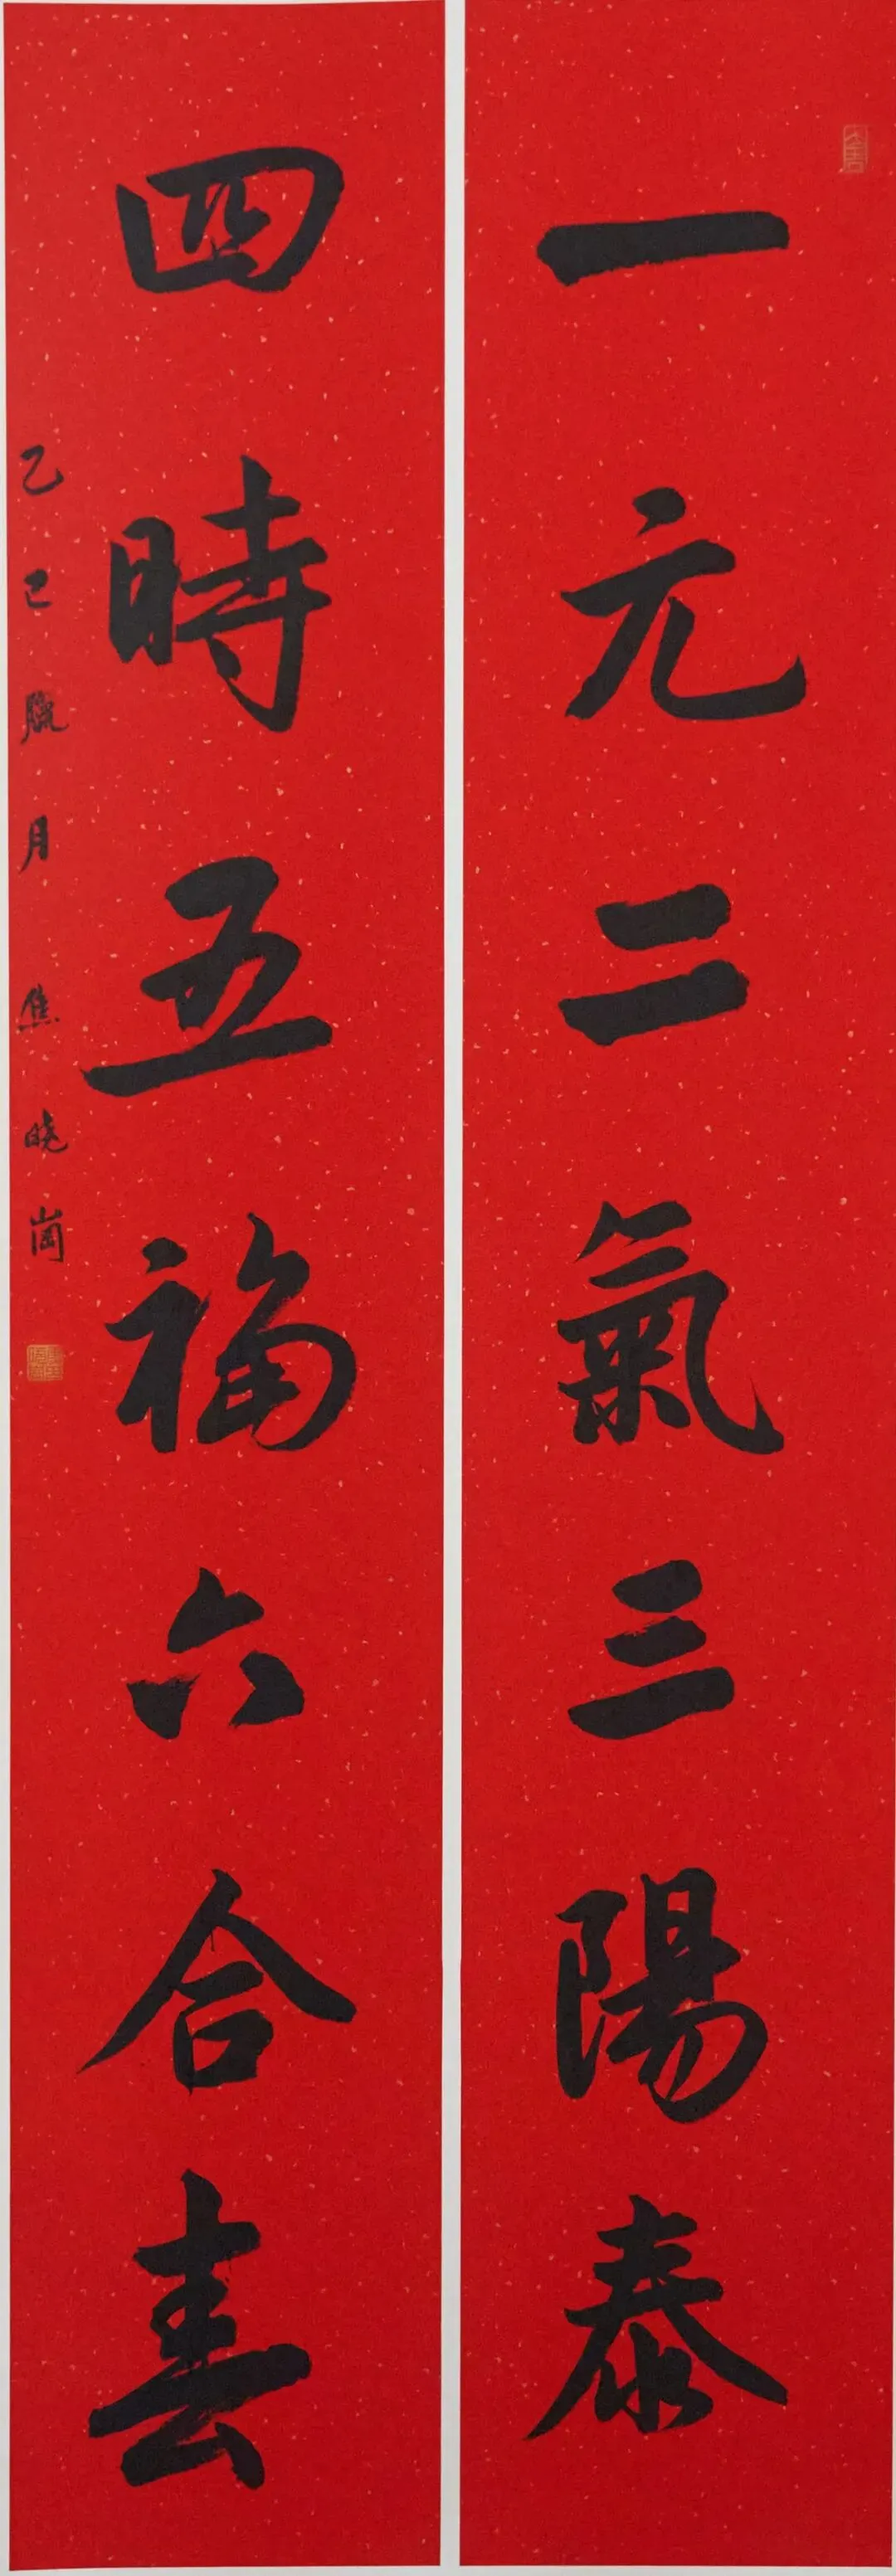 一元二氣三陽泰
四時五福六合春
乙巳臘月 焦曉崗